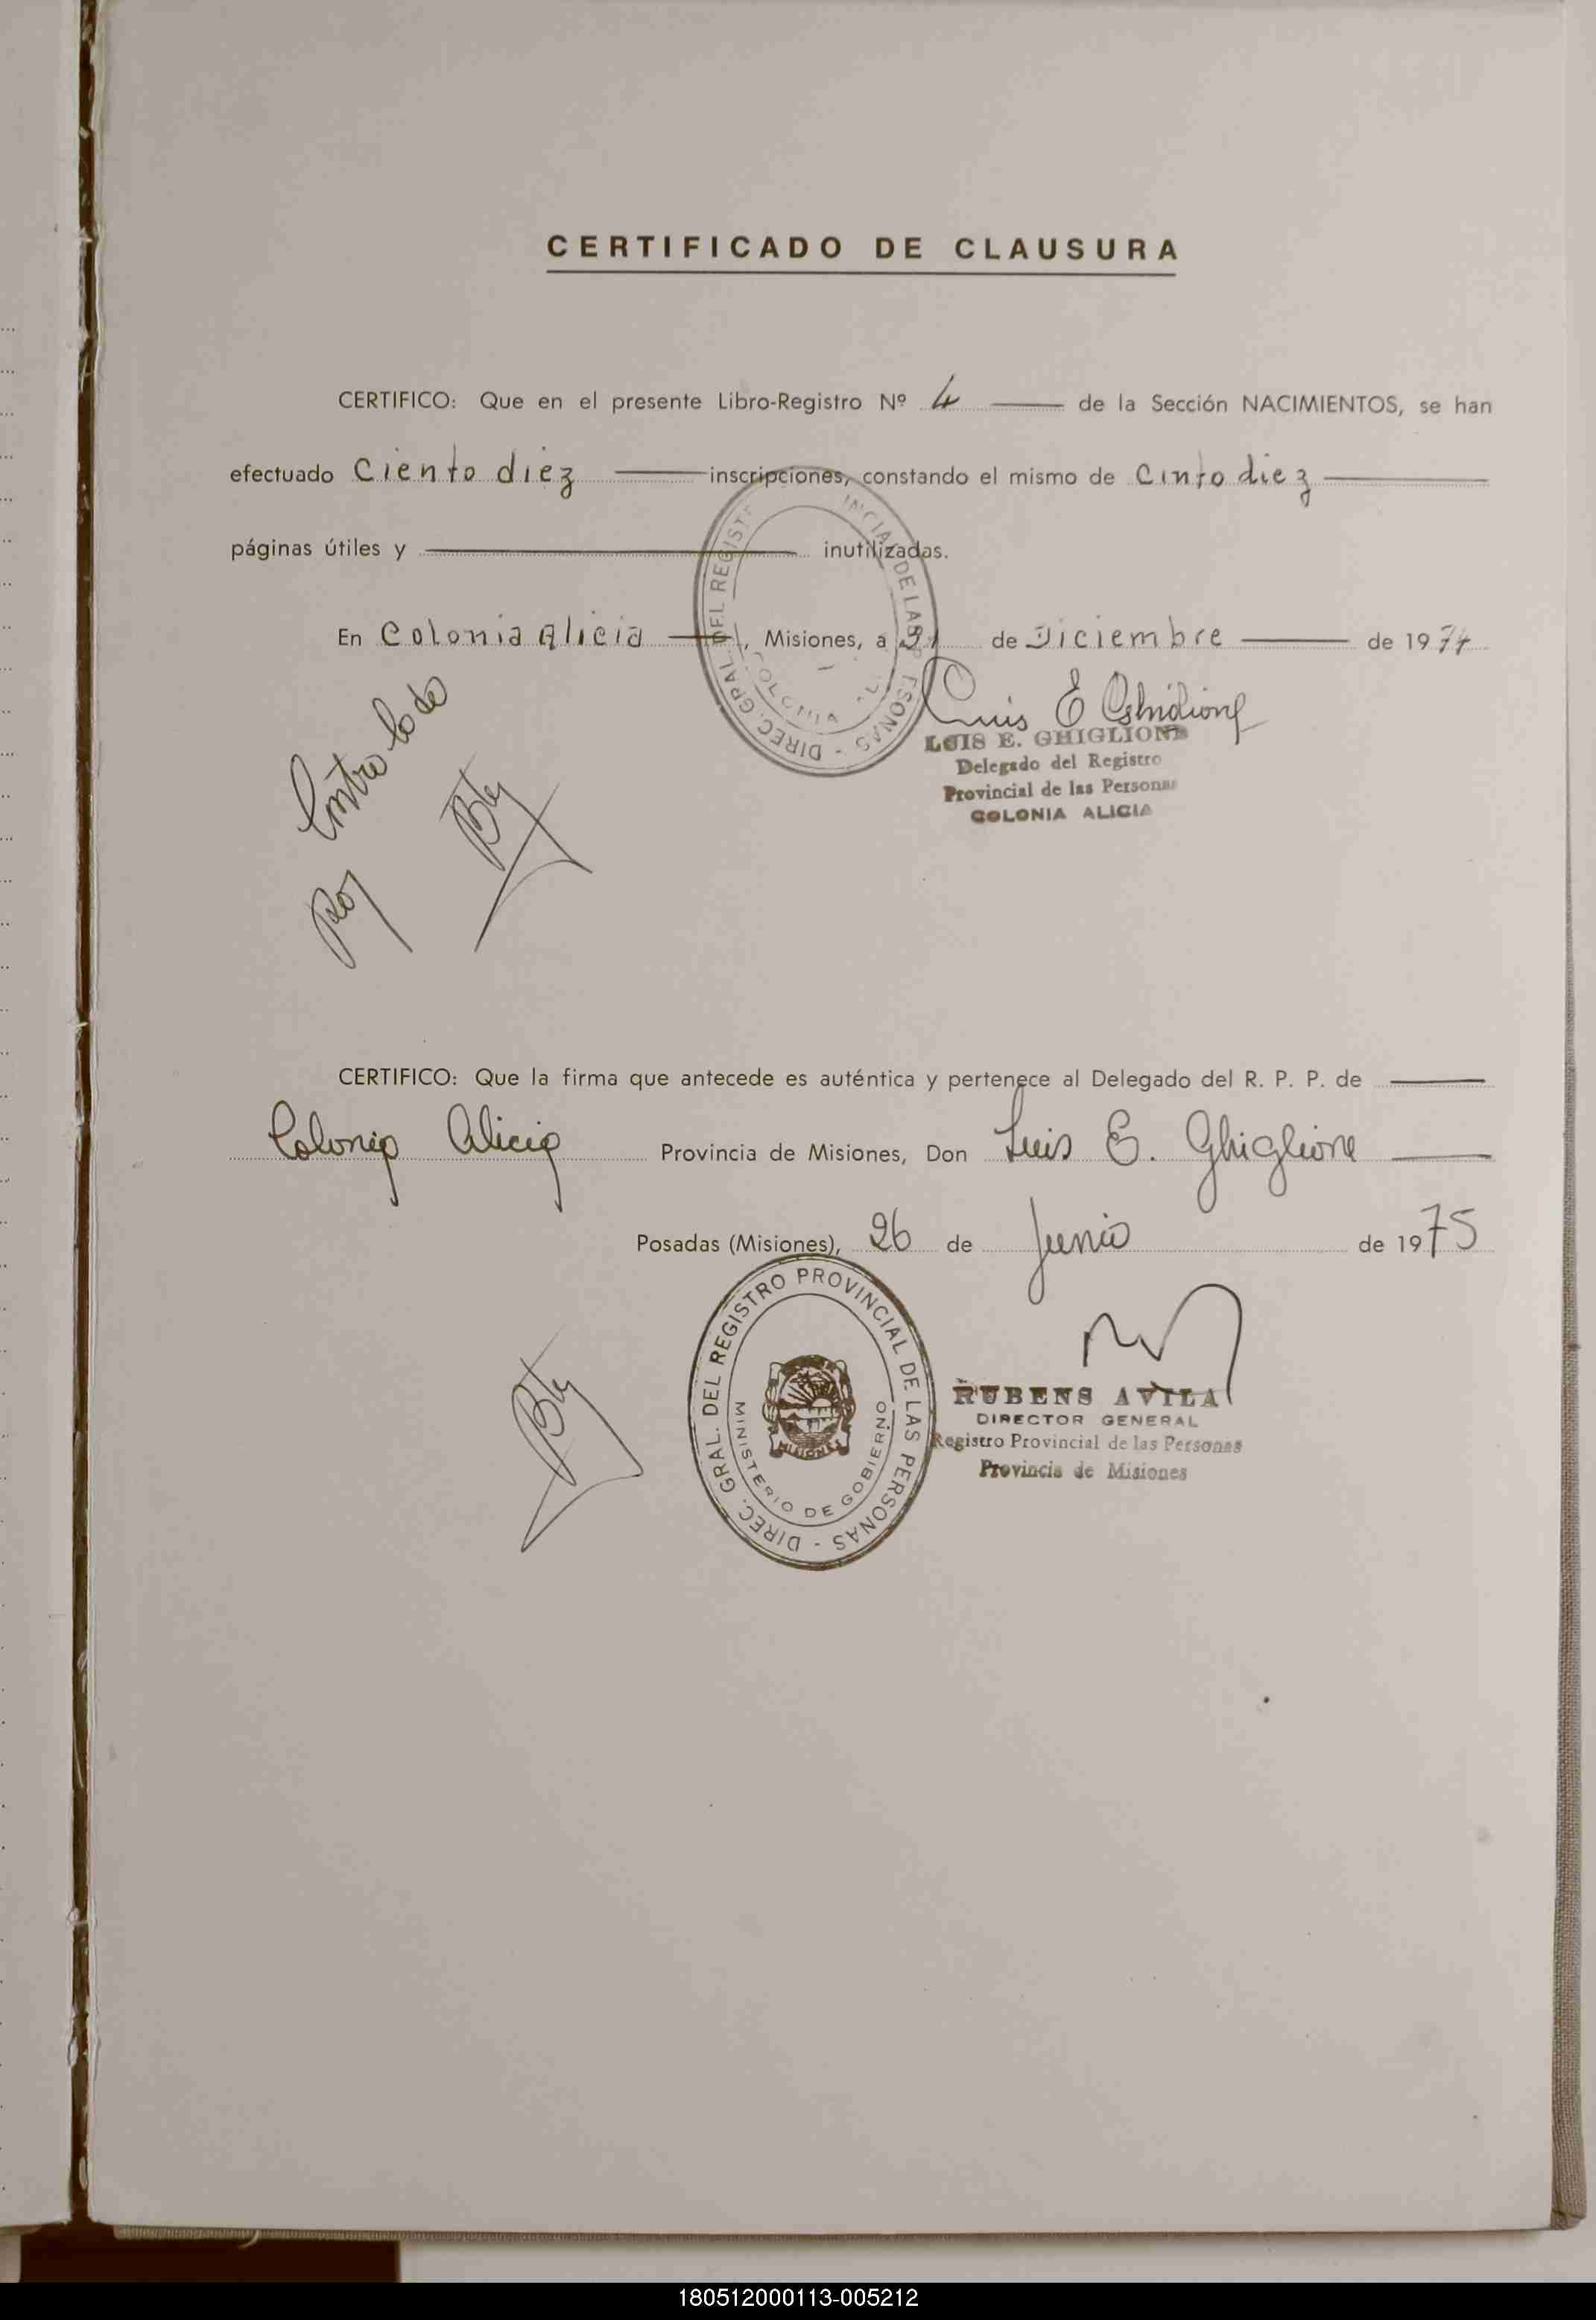 CERTIFICADO DE CLAUSURA
CERTIFICO: Que en el presente Libro-Registro Nº 4 de la Sección NACIMIENTOS, se han
efectuado Ciento diez inscripciones, constando el mismo de Cinto diez
páginas útiles y inutilizadas.
En Colonia Alicia, Misiones, a 31 de Diciembre de 1974
Luis E Ghiglione
LUIS E. GHIGLIONE
Delegado del Registro
Provincial de las Personas
COLONIA ALICIA
Controlado
Por
CERTIFICO: Que la firma que antecede es auténtica y pertenece al Delegado del R. P. P. de
Colonia Alicia Provincia de Misiones, Don Luis E. Ghiglione
Posadas (Misiones), 26 de Junio de 1975
DIREC. GRAL. DEL REGISTRO PROVINCIAL DE LAS PERSONAS -
MINISTERIO DE GOBIERNO
MISIONES
RUBENS AVILA
DIRECTOR GENERAL
Registro Provincial de las Personas
Provincia de Misiones
180512000113-005212